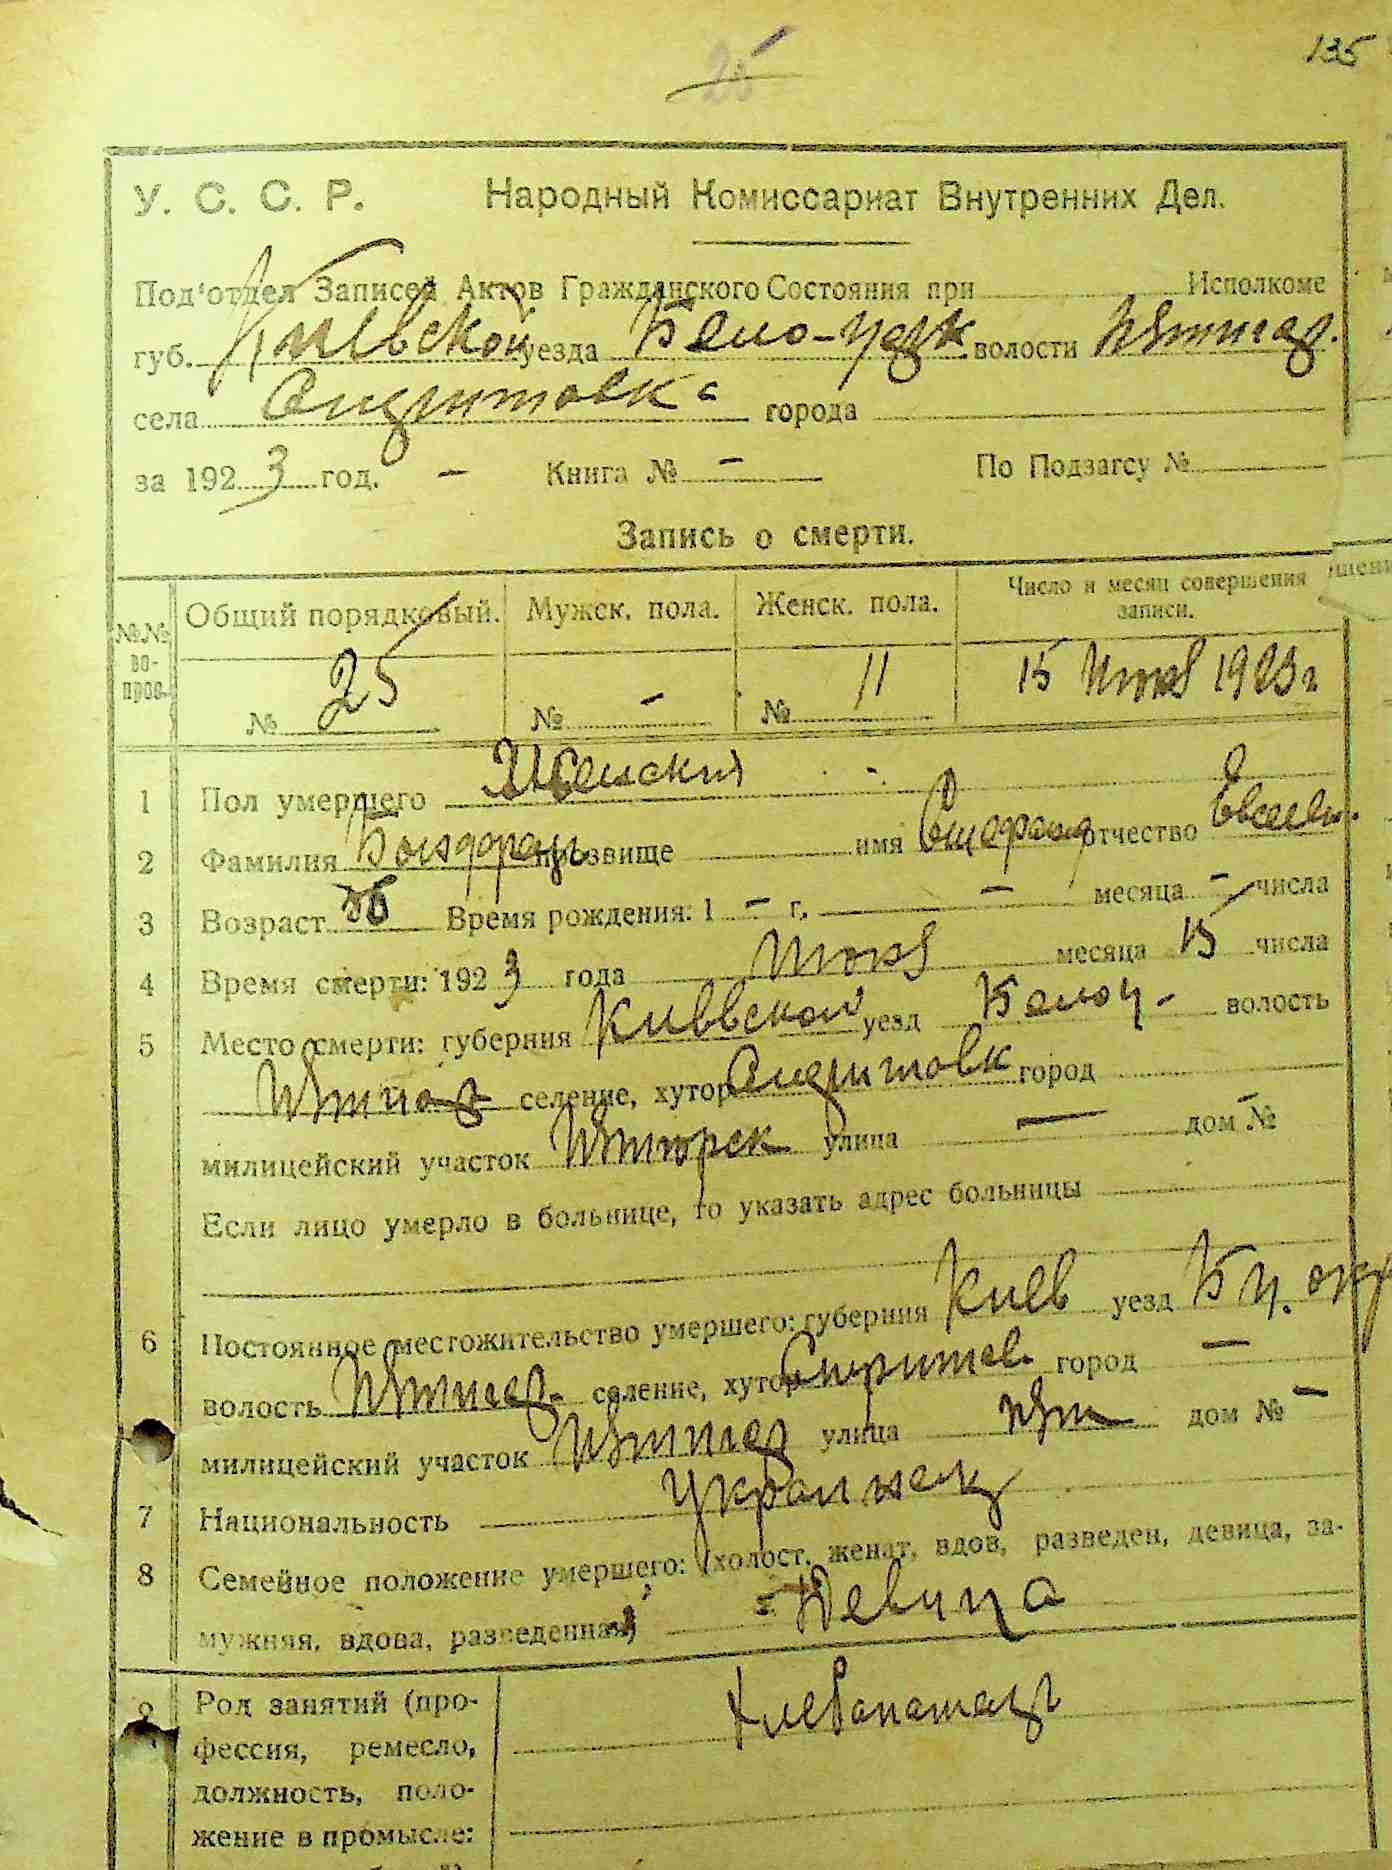 135
25
У. С. С. Р. Народный Комиссариат Внутренних Дел.
Под'отдел Записей Актов Гражданского Состояния при Исполкоме
губ. Киевской уезда Бело-Церк. волости
села города
за 1923 год. - Книга № - По Подзагсу №
Запись о смерти.
№№ вопрос. Общий порядковый. Мужск. пола. Женск. пола. Число и месяц совершения записи.
№ 25 № - № 11 15 1923 г
1 Пол умершего Женский
2 Фамилия прозвище имя отчество
3 Возраст Время рождения: 1 - г. - месяца - числа
4 Время смерти: 1923 года месяца 15 числа
5 Место смерти: губерния Киевской уезд Белоц. волость
селение, хутор город
милицейский участок улица — дом № -
Если лицо умерло в больнице, то указать адрес больницы
6 Постоянное местожительство умершего: губерния Киев уезд Б Ц. окр
волость селение, хутор город —
милицейский участок улица дом № -
7 Национальность Украинец
8 Семейное положение умершего: (холост, женат, вдов, разведен, девица, за-
мужняя, вдова, разведенная) Девица
9 Род занятий (про- Хлебопашец
фессия, ремесло,
должность, поло-
жение в промысле: